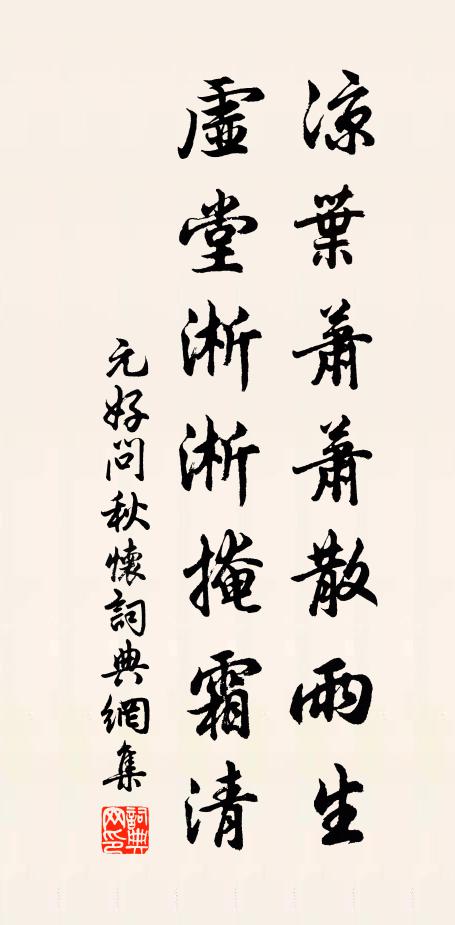 涼葉蕭蕭散雨生
虛堂淅淅掩霜清
元好問秋懷詞典網集
詞典网印